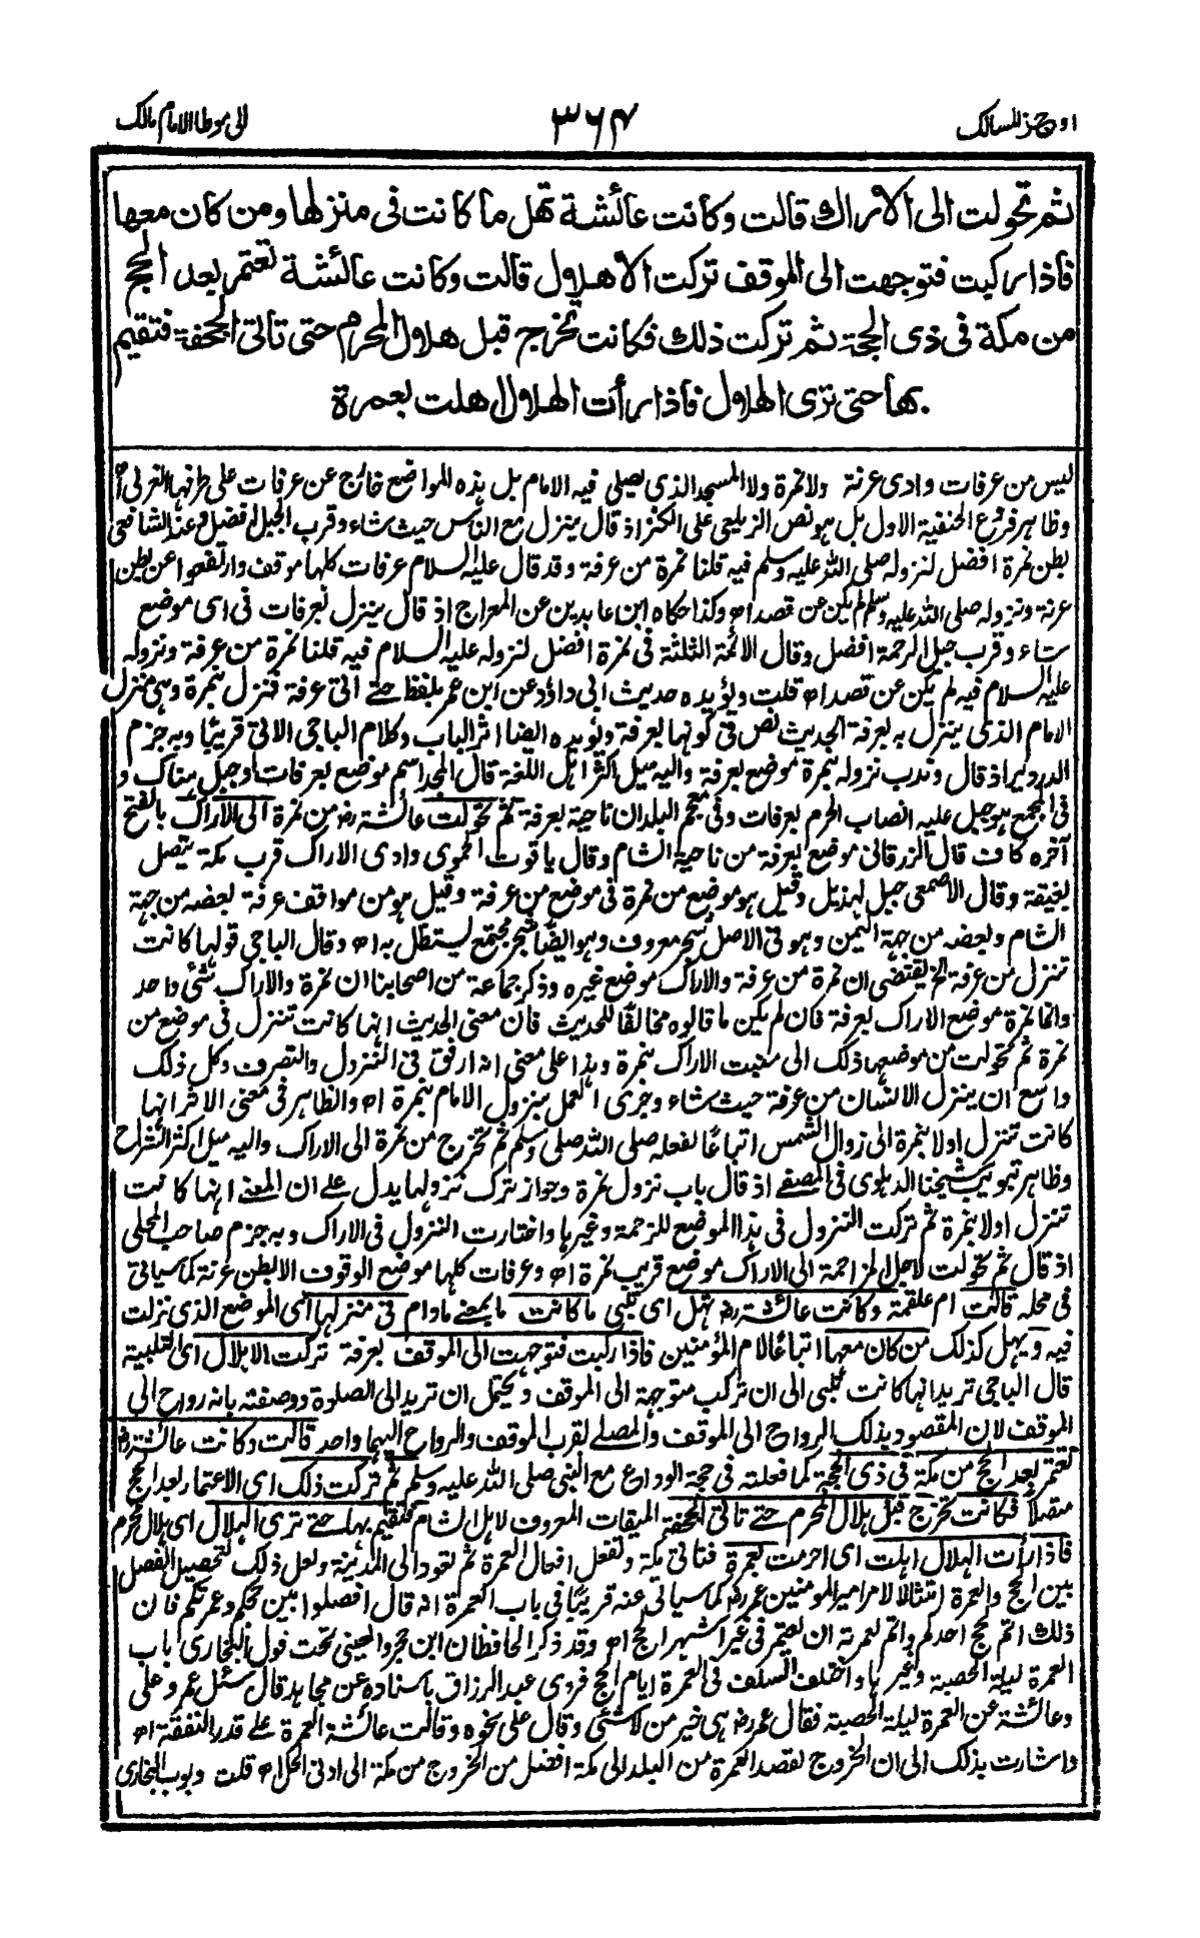 اوجز المسالك ٣٦٤ الى موطا الامام مالك
ثم تحولت الى الاراك قالت وكانت عائشة تهل ما كانت فى منزلها ومن كان معها
فاذا ركبت فتوجهت الى الموقف تركت الاهلال قالت وكانت عائشة تعتمر بعد الحج
من مكة فى ذى الحجة ثم تركت ذلك فكانت تخرج قبل هلال المحرم حتى تاتى الجحفة فتقيم
بها حتى ترى الهلال فاذا رأت الهلال اهلت بعمرة.
ليس من عرفات وادى عرنة ولا نمرة ولا المسجد الذى يصلى فيه الامام بل هذه المواضع خارج عن عرفات على طرفها الغربى اھ
وظاهر فروع الحنفية الاول بل هو نص الزيلعى على الكنز اذ قال ينزل مع الناس حيث شاء وقرب الجبل افضل وعند الشافعى
بطن نمرة افضل لنزوله صلى الله عليه وسلم فيه قلنا نمرة من عرفة وقد قال عليه السلام عرفات كلها موقف وارتفعوا عن بطن
عرنة ونزوله صلى الله عليه وسلم لم يكن عن قصد اھ وكذا حكاه ابن عابدين عن المعراج اذ قال ينزل بعرفات فى اى موضع
شاء وقرب جبل الرحمة افضل وقال الائمة الثلثة فى نمرة افضل لنزوله عليه السلام فيه قلنا نمرة من عرفة ونزوله
عليه السلام فيه لم يكن عن قصد اھ قلت ويؤيده حديث ابى داؤد عن ابن عمر بلفظ حتى اتى عرفة فنزل بنمرة وهى منزل
الامام الذى ينزل به بعرفة الحديث نص فى كونها بعرفة ويؤيده ايضا اثر الباب وكلام الباجى الاتى قريبًا وبه جزم
الدردير اذ قال وندب نزوله بنمرة موضع بعرفة واليه ميل اكثر اهل اللغة قال المجد اسم موضع بعرفات او جبل هناك و
فى المجمع هو جبل عليه انصاب الحرم بعرفات وفى معجم البلدان ناحية بعرفة ثم تحولت عائشة رض من نمرة الى الاراك بالفتح
آخره كاف قال الزرقانى موضع بعرفة من ناحية الشام وقال ياقوت الحموى وادى الاراك قرب مكة يتصل
بغيقة وقال الاصمعى جبل لهذيل وقيل هو موضع من نمرة فى موضع من عرفة وقيل هو من مواقف عرفة بعضه من جهة
الشام وبعضه من جهة اليمن وهو فى الاصل شجر معروف وهو ايضًا شجر مجتمع يستظل به اھ وقال الباجى قولها كانت
تنزل من عرفة الخ يقتضى ان نمرة من عرفة والاراك موضع غيره وذكر جماعة من اصحابنا ان نمرة والاراك شئ واحد
وانما نمرة موضع الاراك بعرفة فان لم يكن ما قالوه مخالفًا للحديث فان معنى الحديث انها كانت تنزل فى موضع من
نمرة ثم تحولت من موضعها ذلك الى منبت الاراك بنمرة وهذا على معنى انه ارفق فى النزول والتصرف وكل ذلك
واسع ان ينزل الانسان من عرفة حيث شاء وجرى العمل بنزول الامام بنمرة اھ والظاهر فى معنى الاثر انها
كانت تنزل اولا بنمرة الى زوال الشمس اتباعًا لفعله صلى الله صلى وسلم ثم تخرج من نمرة الى الاراك واليه ميل اكثر الشراح
وظاهر تبويب شيخنا الدهلوى فى المصفى اذ قال باب نزول نمرة وجواز ترك نزولها يدل على ان المعنى انها كانت
تنزل اولا بنمرة ثم تركت النزول فى هذا الموضع للزحمة وغيرها واختارت النزول فى الاراك وبه جزم صاحب المحلى
اذ قال ثم تحولت لاجل المزاحمة الى الاراك موضع قريب نمرة اھ وعرفات كلها موضع الوقوف الا بطن عرنة كما سياتى
فى محله قالت ام علقمة وكانت عائشة رض تهل اى تلبى ما كانت ما بمعنى مادام فى منزلها اى الموضع الذى نزلت
فيه ويهل كذلك من كان معها اتباعًا لام المؤمنين فاذا ركبت فتوجهت الى الموقف بعرفة تركت الاهلال اى التلبية
قال الباجى تريد انها كانت تلبى الى ان تركب متوجهة الى الموقف ويحتمل ان تريد الى الصلوة ووصفته بانه رواح الى
الموقف لان المقصود بذلك الرواح الى الموقف والمصلى لقرب الموقف والرواح اليهما واحد قالت وكانت عائشة رض
تعتمر بعد الحج من مكة فى ذى الحجة كما فعلته فى حجة الوداع مع النبى صلى الله عليه وسلم ثم تركت ذلك اى الاعتمار بعد الحج
متصلًا فكانت تخرج قبل هلال المحرم حتى تاتى الجحفة الميقات المعروف لاهل الشام فتقيم بها حتى ترى الهلال اى هلال المحرم
فاذا رأت الهلال اهلت اى احرمت بعمرة فتاتى مكة وتفعل افعال العمرة ثم تعود الى المدينة ولعل ذلك لتحصيل الفصل
بين الحج والعمرة امتثالا لامر امير المومنين عمر رض كما سياتى عنه قريبًا فى باب العمرة انه قال افصلوا بين حجكم وعمرتكم فان
ذلك اتم لحج احدكم واتم لعمرته ان يعتمر فى غير اشهر الحج اھ وقد ذكر الحافظان ابن حجر والعينى تحت قول البخارى باب
العمرة ليلة الحصبة وغيرها واختلف السلف فى العمرة ايام الحج فروى عبد الرزاق باسناده عن مجاهد قال سئل عمر وعلى
وعائشة عن العمرة ليلة الحصبة فقال عمر رض هى خير من لا شئى وقال على نحوه وقالت عائشة العمرة على قدر النفقة اھ
واشارت بذلك الى ان الخروج لقصد العمرة من البلد الى مكة افضل من الخروج من مكة الى ادنى الحل اھ قلت وبوب البخارى